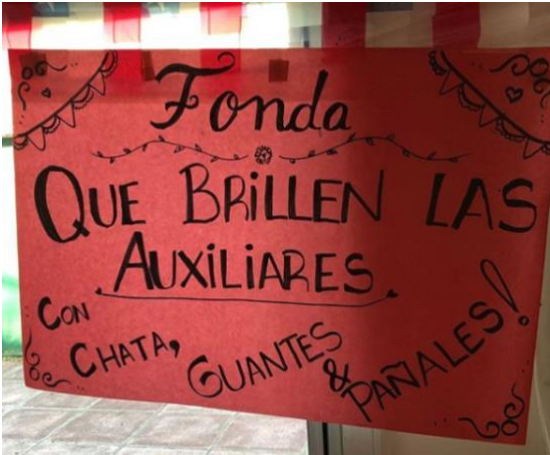 Fonda
QUE BRiLLEN LAS
AUXiLiARES
CON
CHATA,
GUANTES
& PAÑALES!